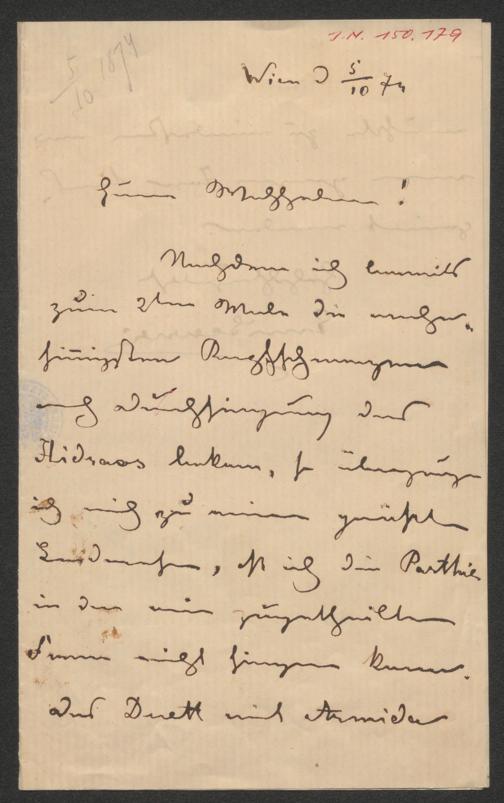 I.N. 150.179
5/10 1874
Wien d 5/10 74
Euer Wohlgeboren!
Nachdem ich bereits
zum 2ten Male die
Rachenschmerzen
nach Durchsingung des
Hidraos bekam, so überzeuge
ich mich zu meinem größten
Leidwesen, daß ich die Parthie
in der mir zugetheilten
Form nicht singen kann.
Das Duett mit Armida